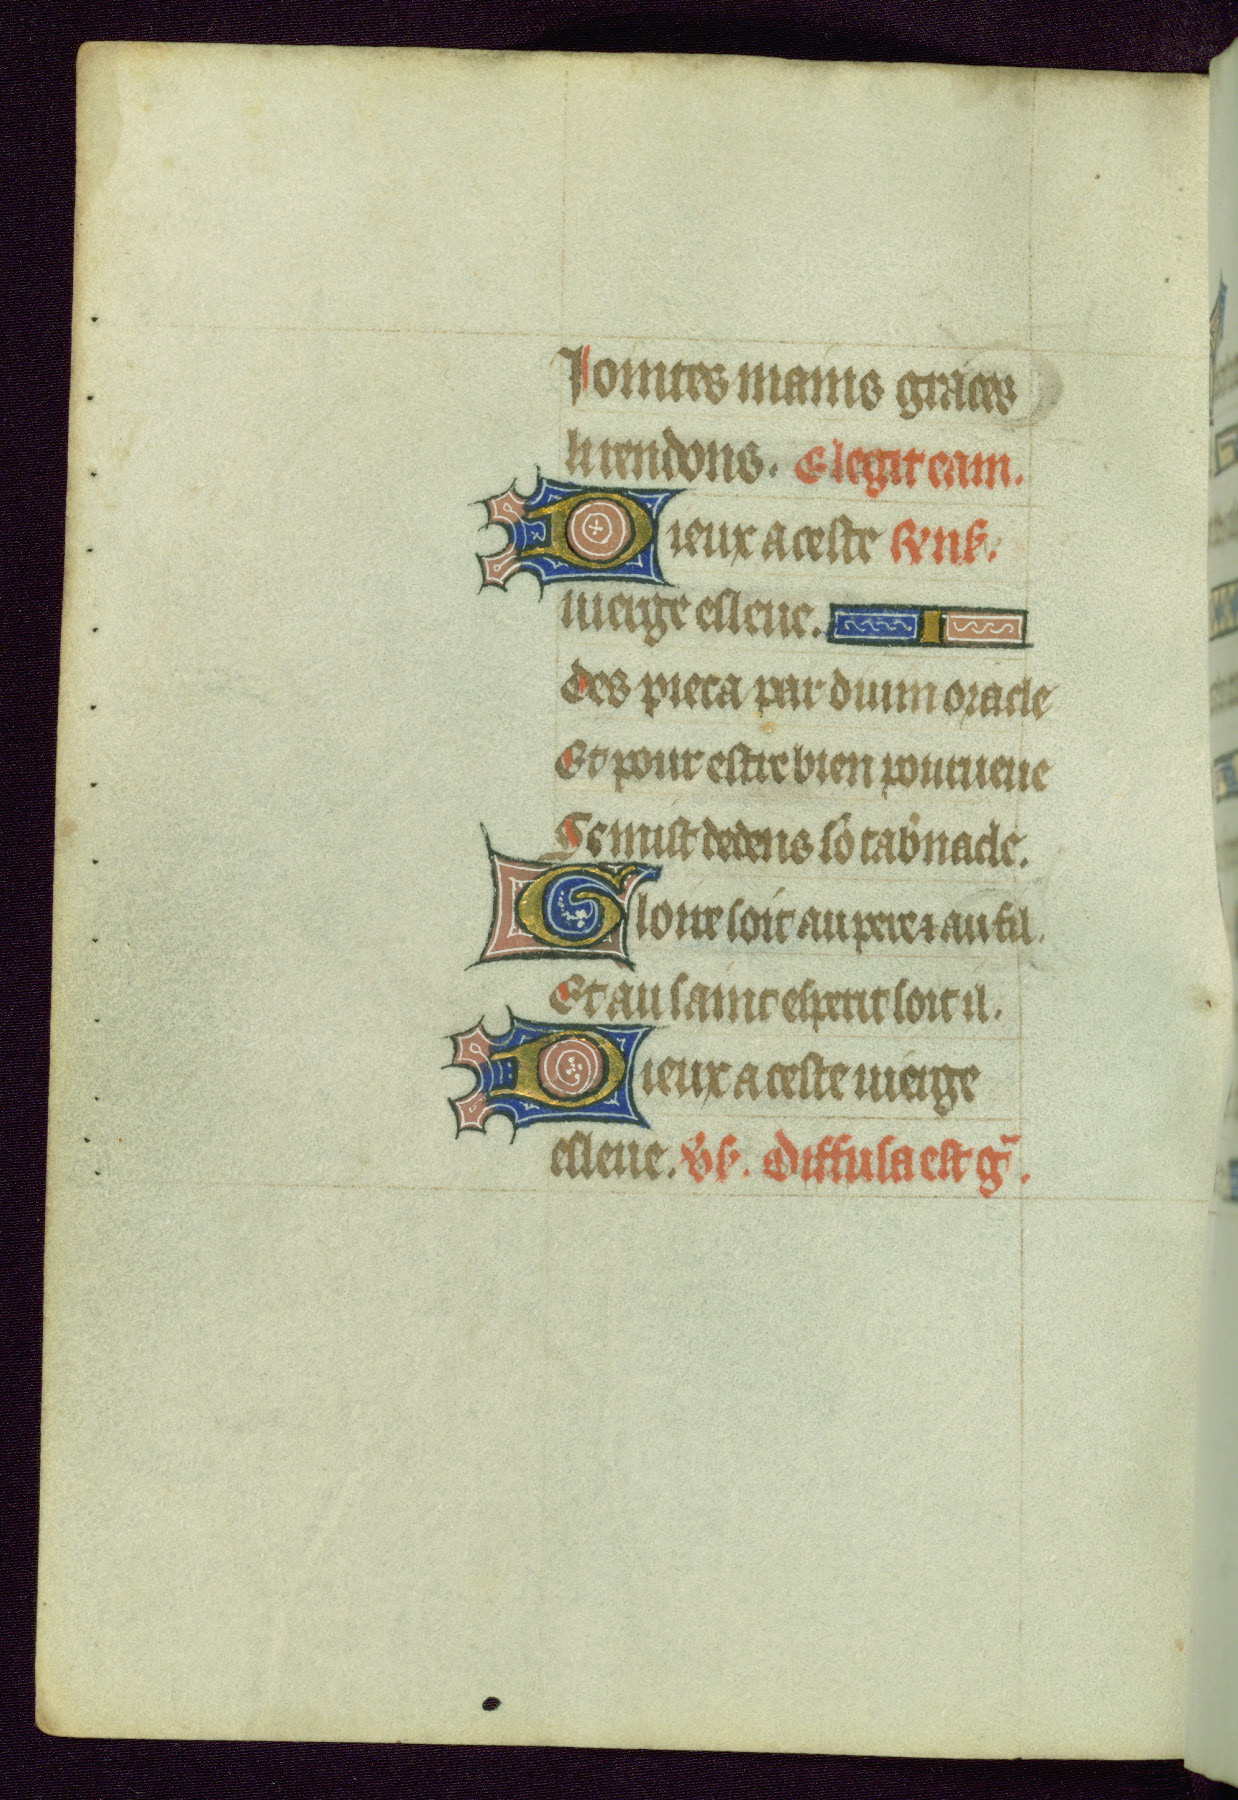 Jointes mains graces
li rendons. Elegit eam.
Dieux a ceste
uierge esleue.
Des pieca par diuin oracle
Et pour estre bien pourueue
Se mist dedens sō tab̄nacle.
Gloire soit au pere ⁊ au fil.
Et au saint esperit soit il.
Dieux a ceste uierge
esleue. Diffusa est gͣ.